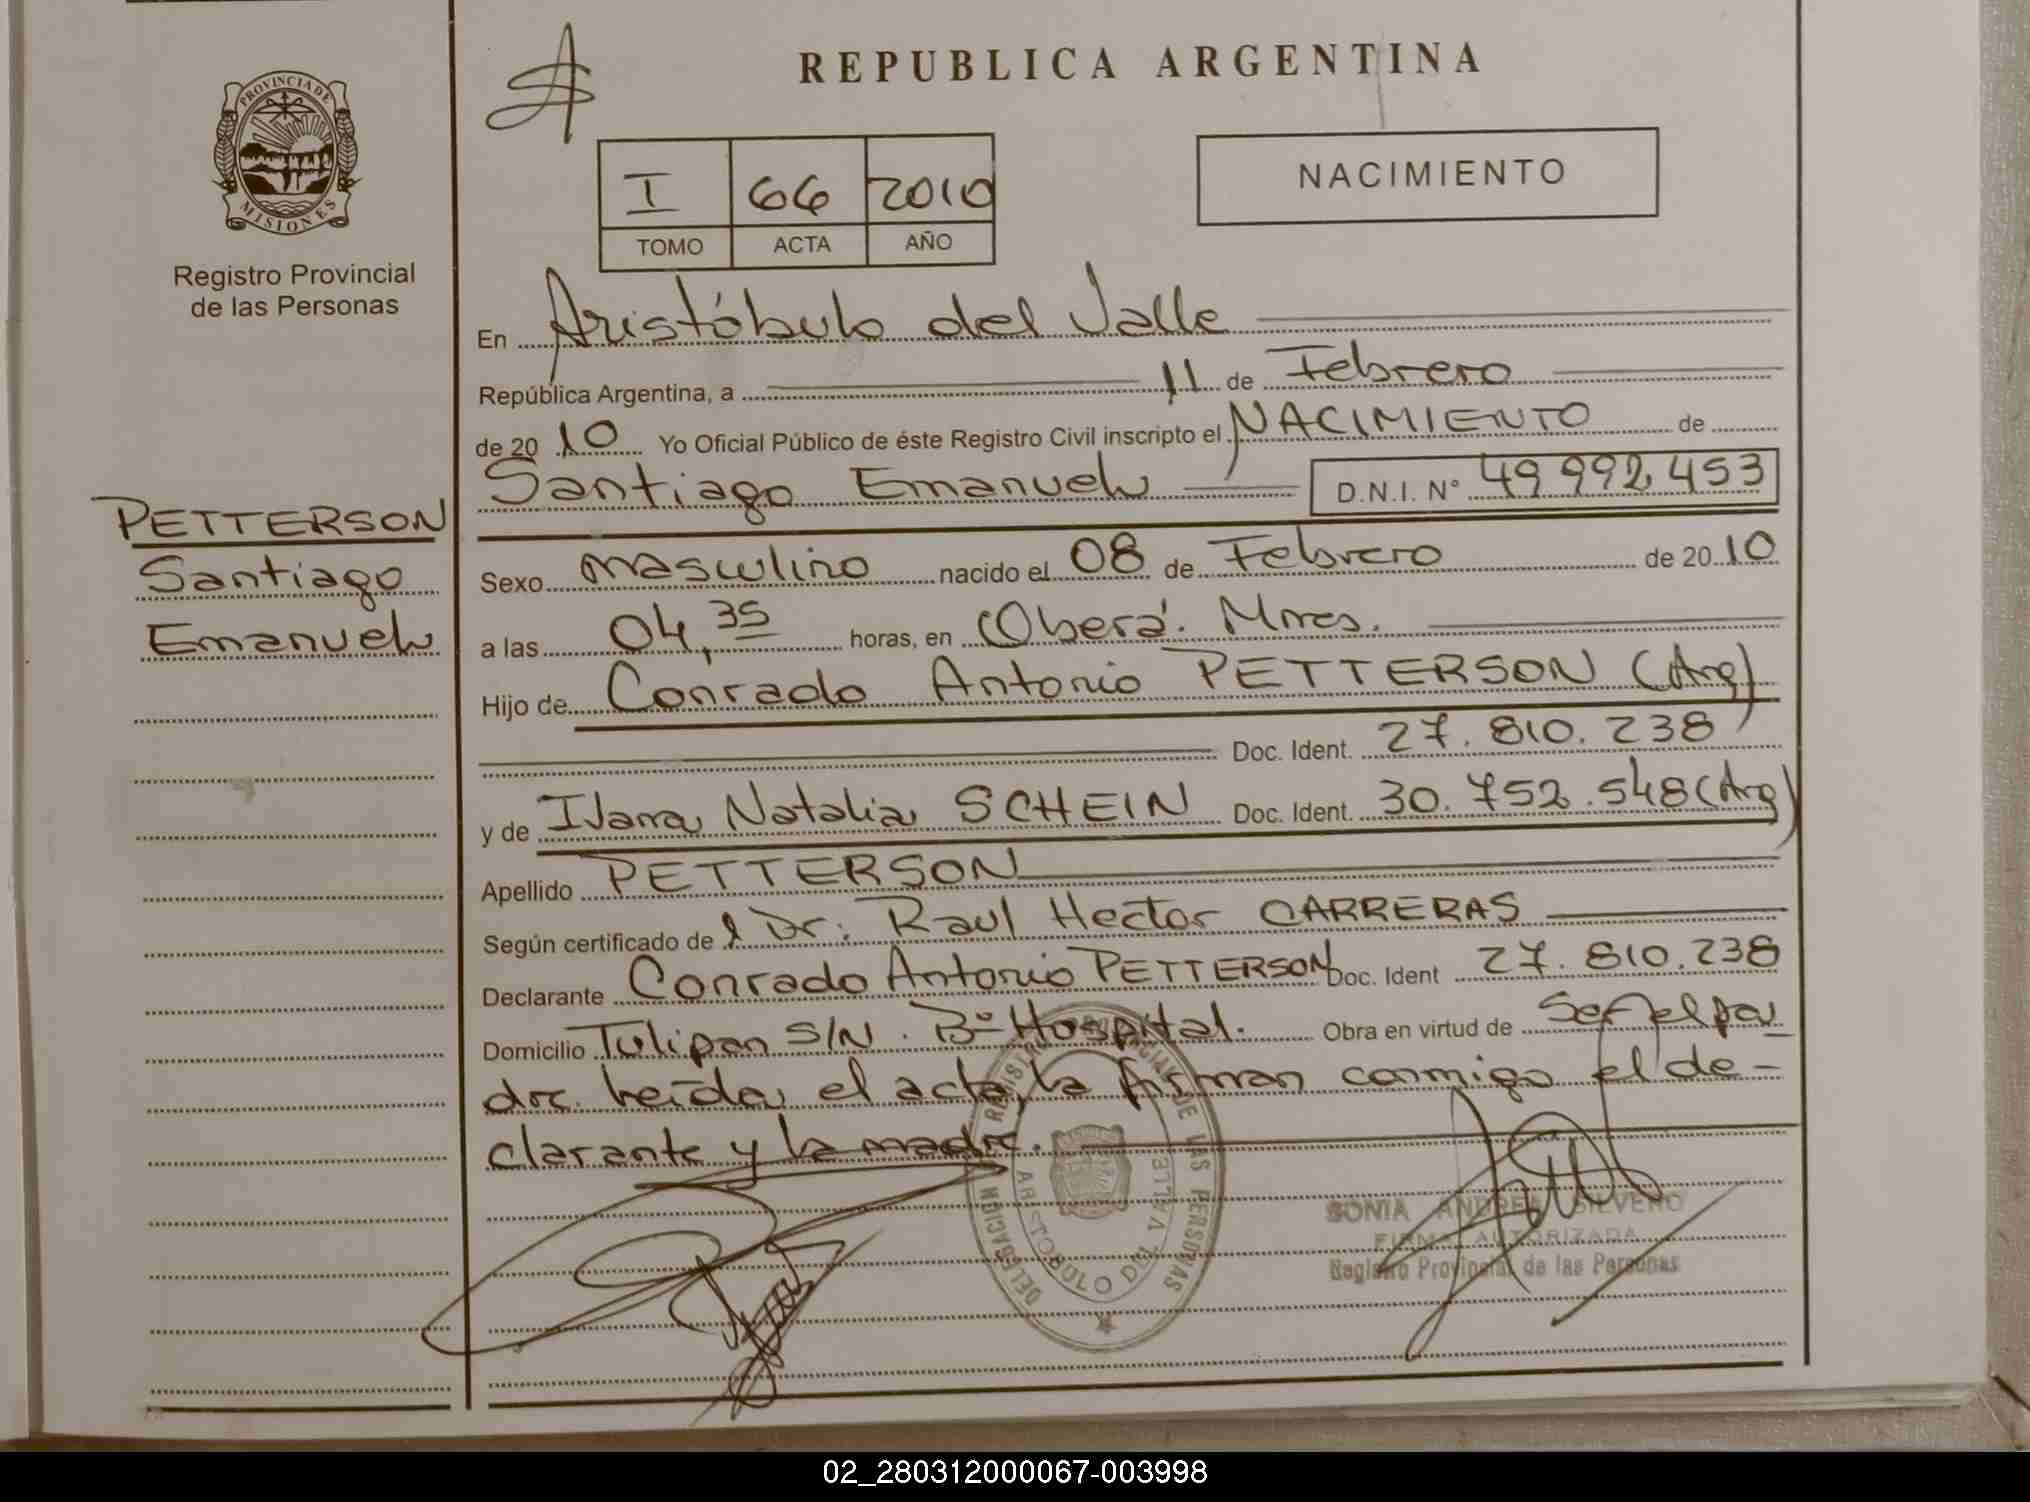 PROVINCIA DE
MISIONES
Registro Provincial
de las Personas
PETTERSON
Santiago
Emanuel
REPUBLICA ARGENTINA
I 66 2010
TOMO ACTA AÑO
NACIMIENTO
En Aristóbulo del Valle
República Argentina, a 11 de Febrero
de 20 10 Yo Oficial Público de éste Registro Civil inscripto el NACIMIENTO de
Santiago Emanuel D.N.I. N° 49 992 453
Sexo masculino nacido el 08 de Febrero de 20 10
a las 04,35 horas, en Oberá. Mnes.
Hijo de Conrado Antonio PETTERSON (Arg)
Doc. Ident. 27.810.238
y de Ivana Natalia SCHEIN Doc. Ident. 30.752.548 (Arg)
Apellido PETTERSON
Según certificado de l Dr. Raul Hector CARRERAS
Declarante Conrado Antonio PETTERSON Doc. Ident 27.810.238
Domicilio Tulipan S/N. B° Hospital. Obra en virtud de Ser el pa
dre. leída el acta, la firman conmigo el de-
clarante y la madre.
DELEGACION REGISTRO PROVINCIAL DE LAS PERSONAS
ARISTOBULO DEL VALLE
SONIA ANDREA SILVERO
FIRMA AUTORIZADA
Registro Provincial de las Personas
02_280312000067-003998